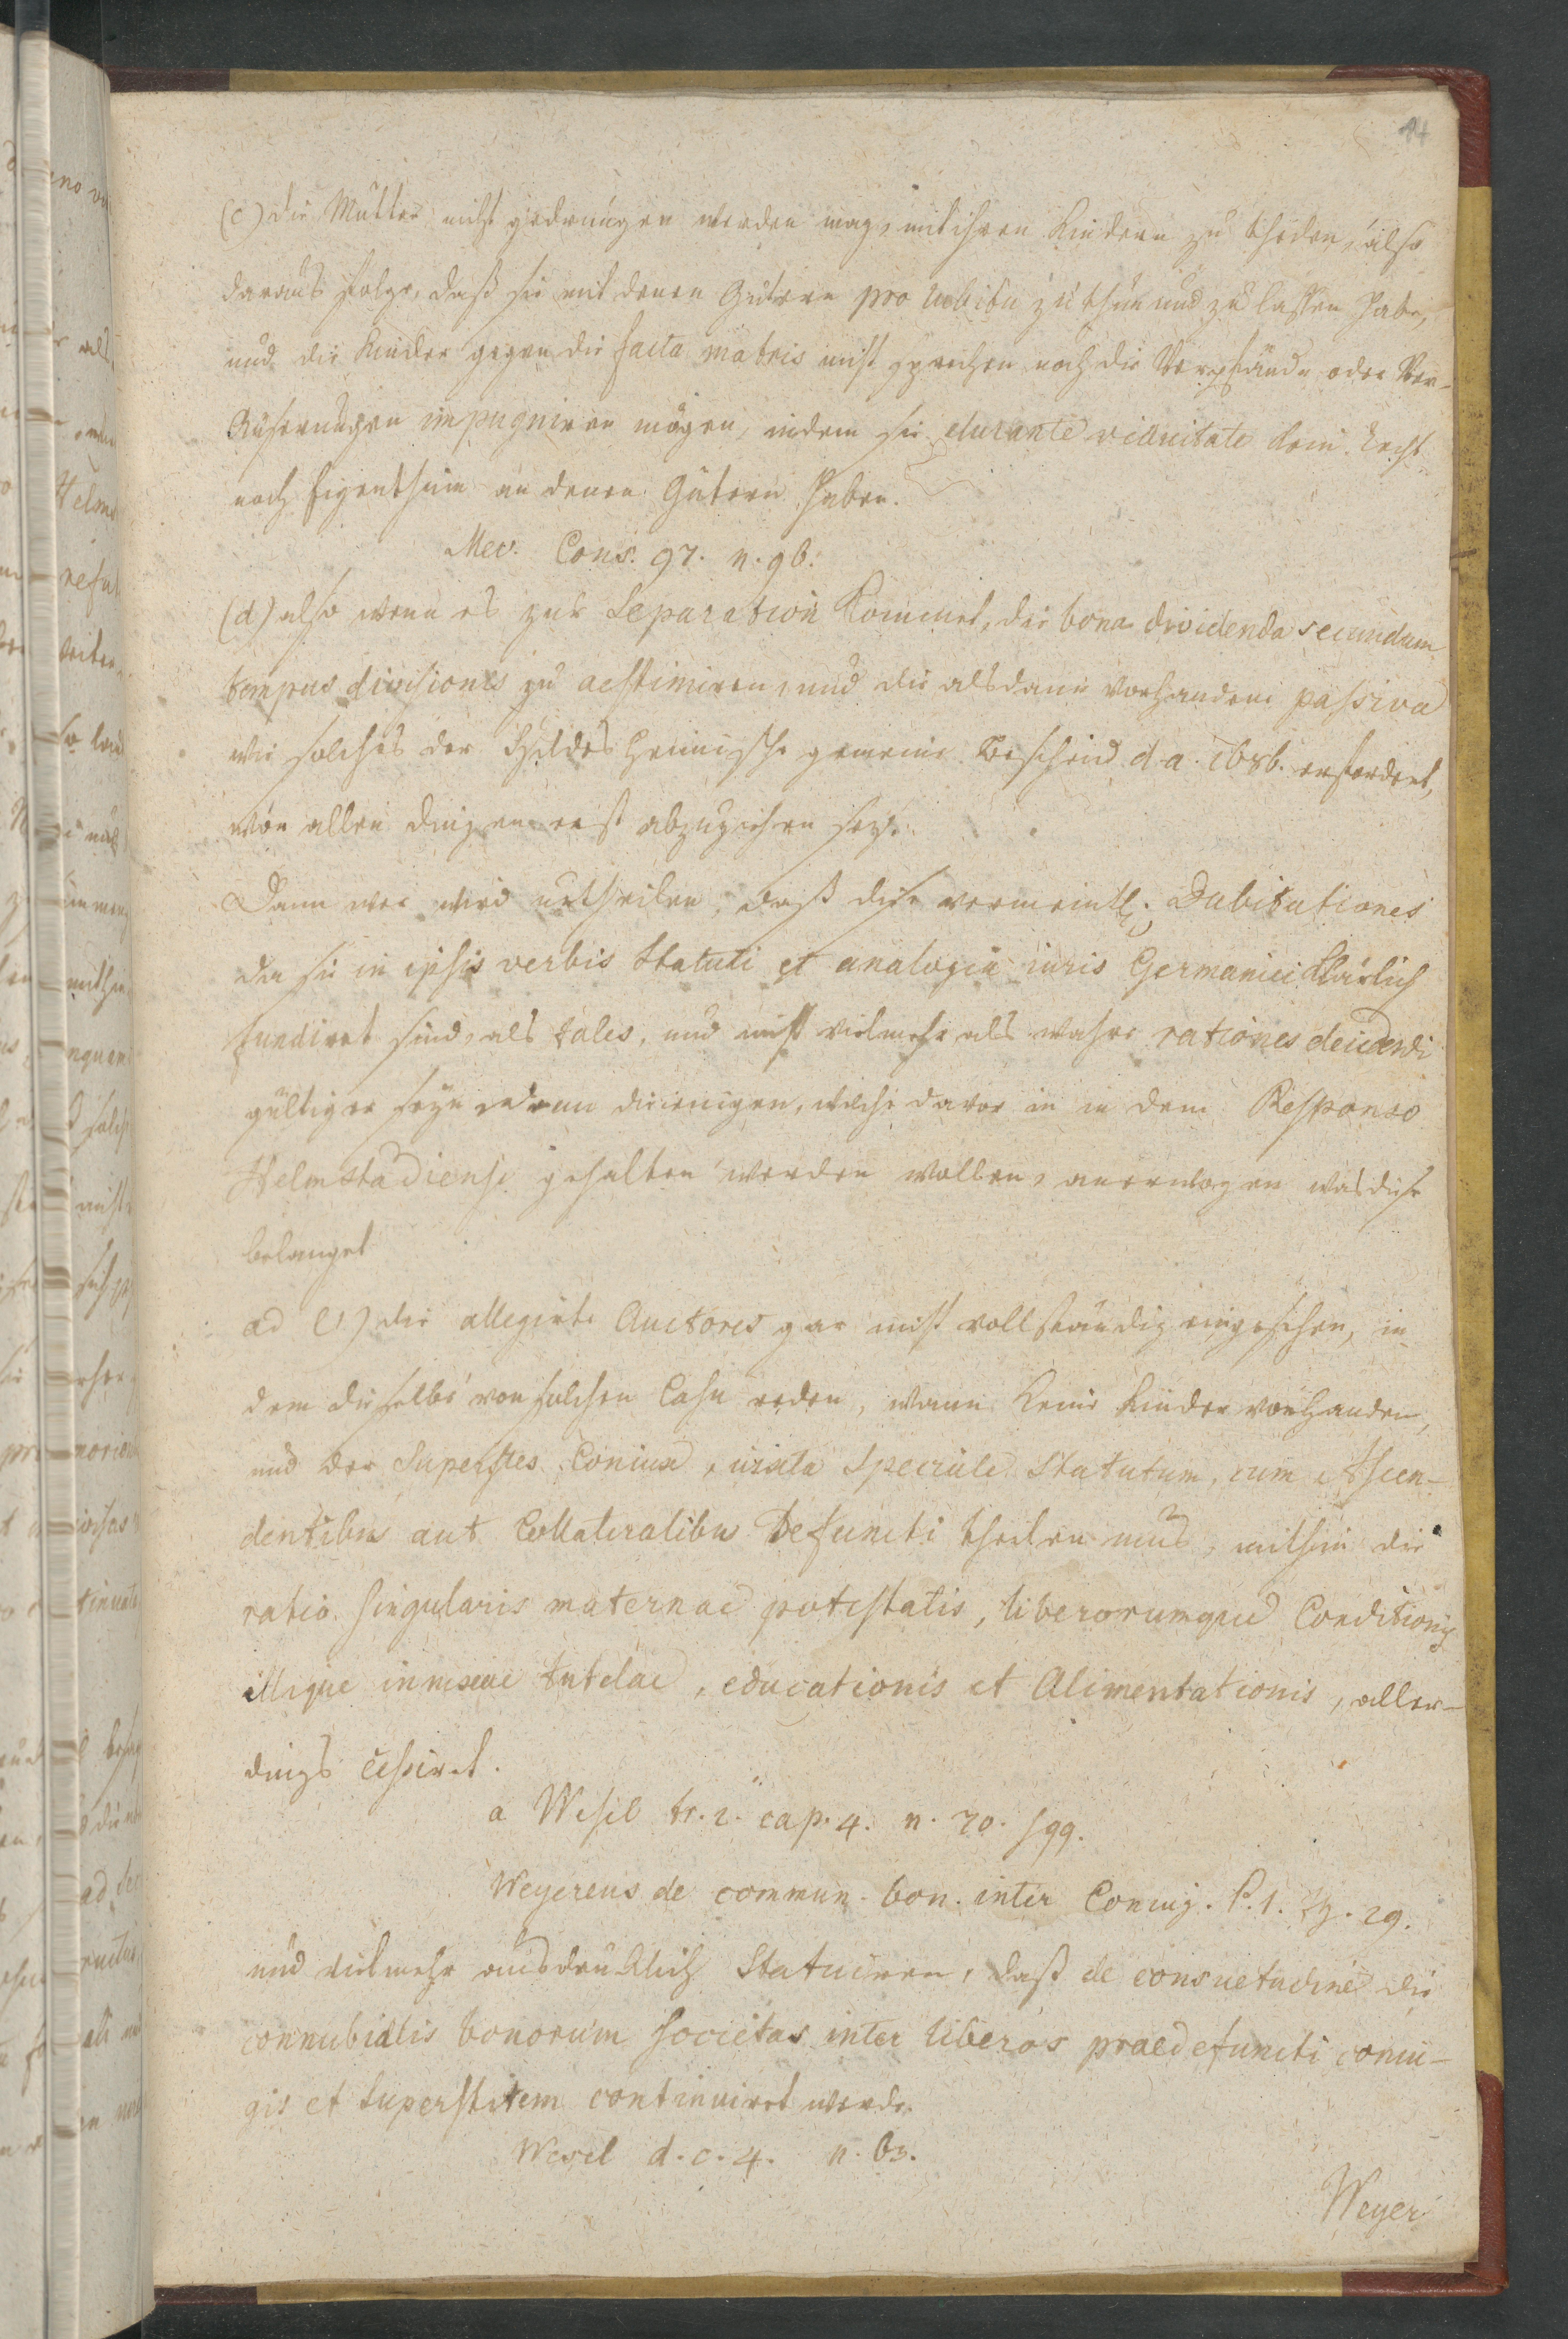 14
(c) die Mutter nicht gedrungen werden mag, mit ihren Kindern zu theilen, also
daraus folge, daß sie mit denen Gütern pro lubitu zu thun und zu lassen habe,
und die Kinder gegen die facta matris nicht sprechen noch die Verpfände oder Ver-
äußerungen impugniren mögen, indem sie durante viduitate kein Recht
noch Eigenthum an denen Gütern haben.
Mev. Cons. 97. n. 96.
(d) also wenn es zur Separation kommet, die bona dividenda secundum
tempus divisionis zu aestimiren, und die alsdann vorhandene passiva
wie solches der Hildesheimische gemeine Bescheid d. a. 1686. erfordert,
von allen dingen erst abzuziehen sey.
Dann wer wird urtheilen, daß diese vermeintl. Dubitationes
da sie in ipsis verbis Statuti et analogia iuris Germanici klärlich
fundiret sind, als tales, und nicht vielmehr als wahre rationes decidendi
gültiger seyn denn diejenigen, welche davor in dem Responso
Helmstadiense gehalten werden wollen, anerwogen was diese
belanget
ad (1) die allegirte Auctores gar nicht vollständig eingesehen, in
dem dieselbe von solchen Casu reden, wann keine Kinder vorhanden,
und der Superstes Coniux, iuxta Speciale Statutum, cum Ascen-
dentibus aut Collateralibus Defuncti theilen mus, mithin die
ratio singularis maternae potestatis, liberorumque Conditionis
illique innexae tutelae, educationis et Alimentationis, aller-
dings cessiret.
a Wesel tr. 2. cap. 4. n. 70. sqq.
Weyerens de commun. bon. inter Coniug. P. 1. Th. 29.
und vielmehr ausdrücklich Statuiren, daß de consuetudine die
connubialis bonorum societas inter liberos praedefuncti coniu-
gis et Superstitem continuiret werde.
Wesel d. c. 4. n. 63.
Weyer